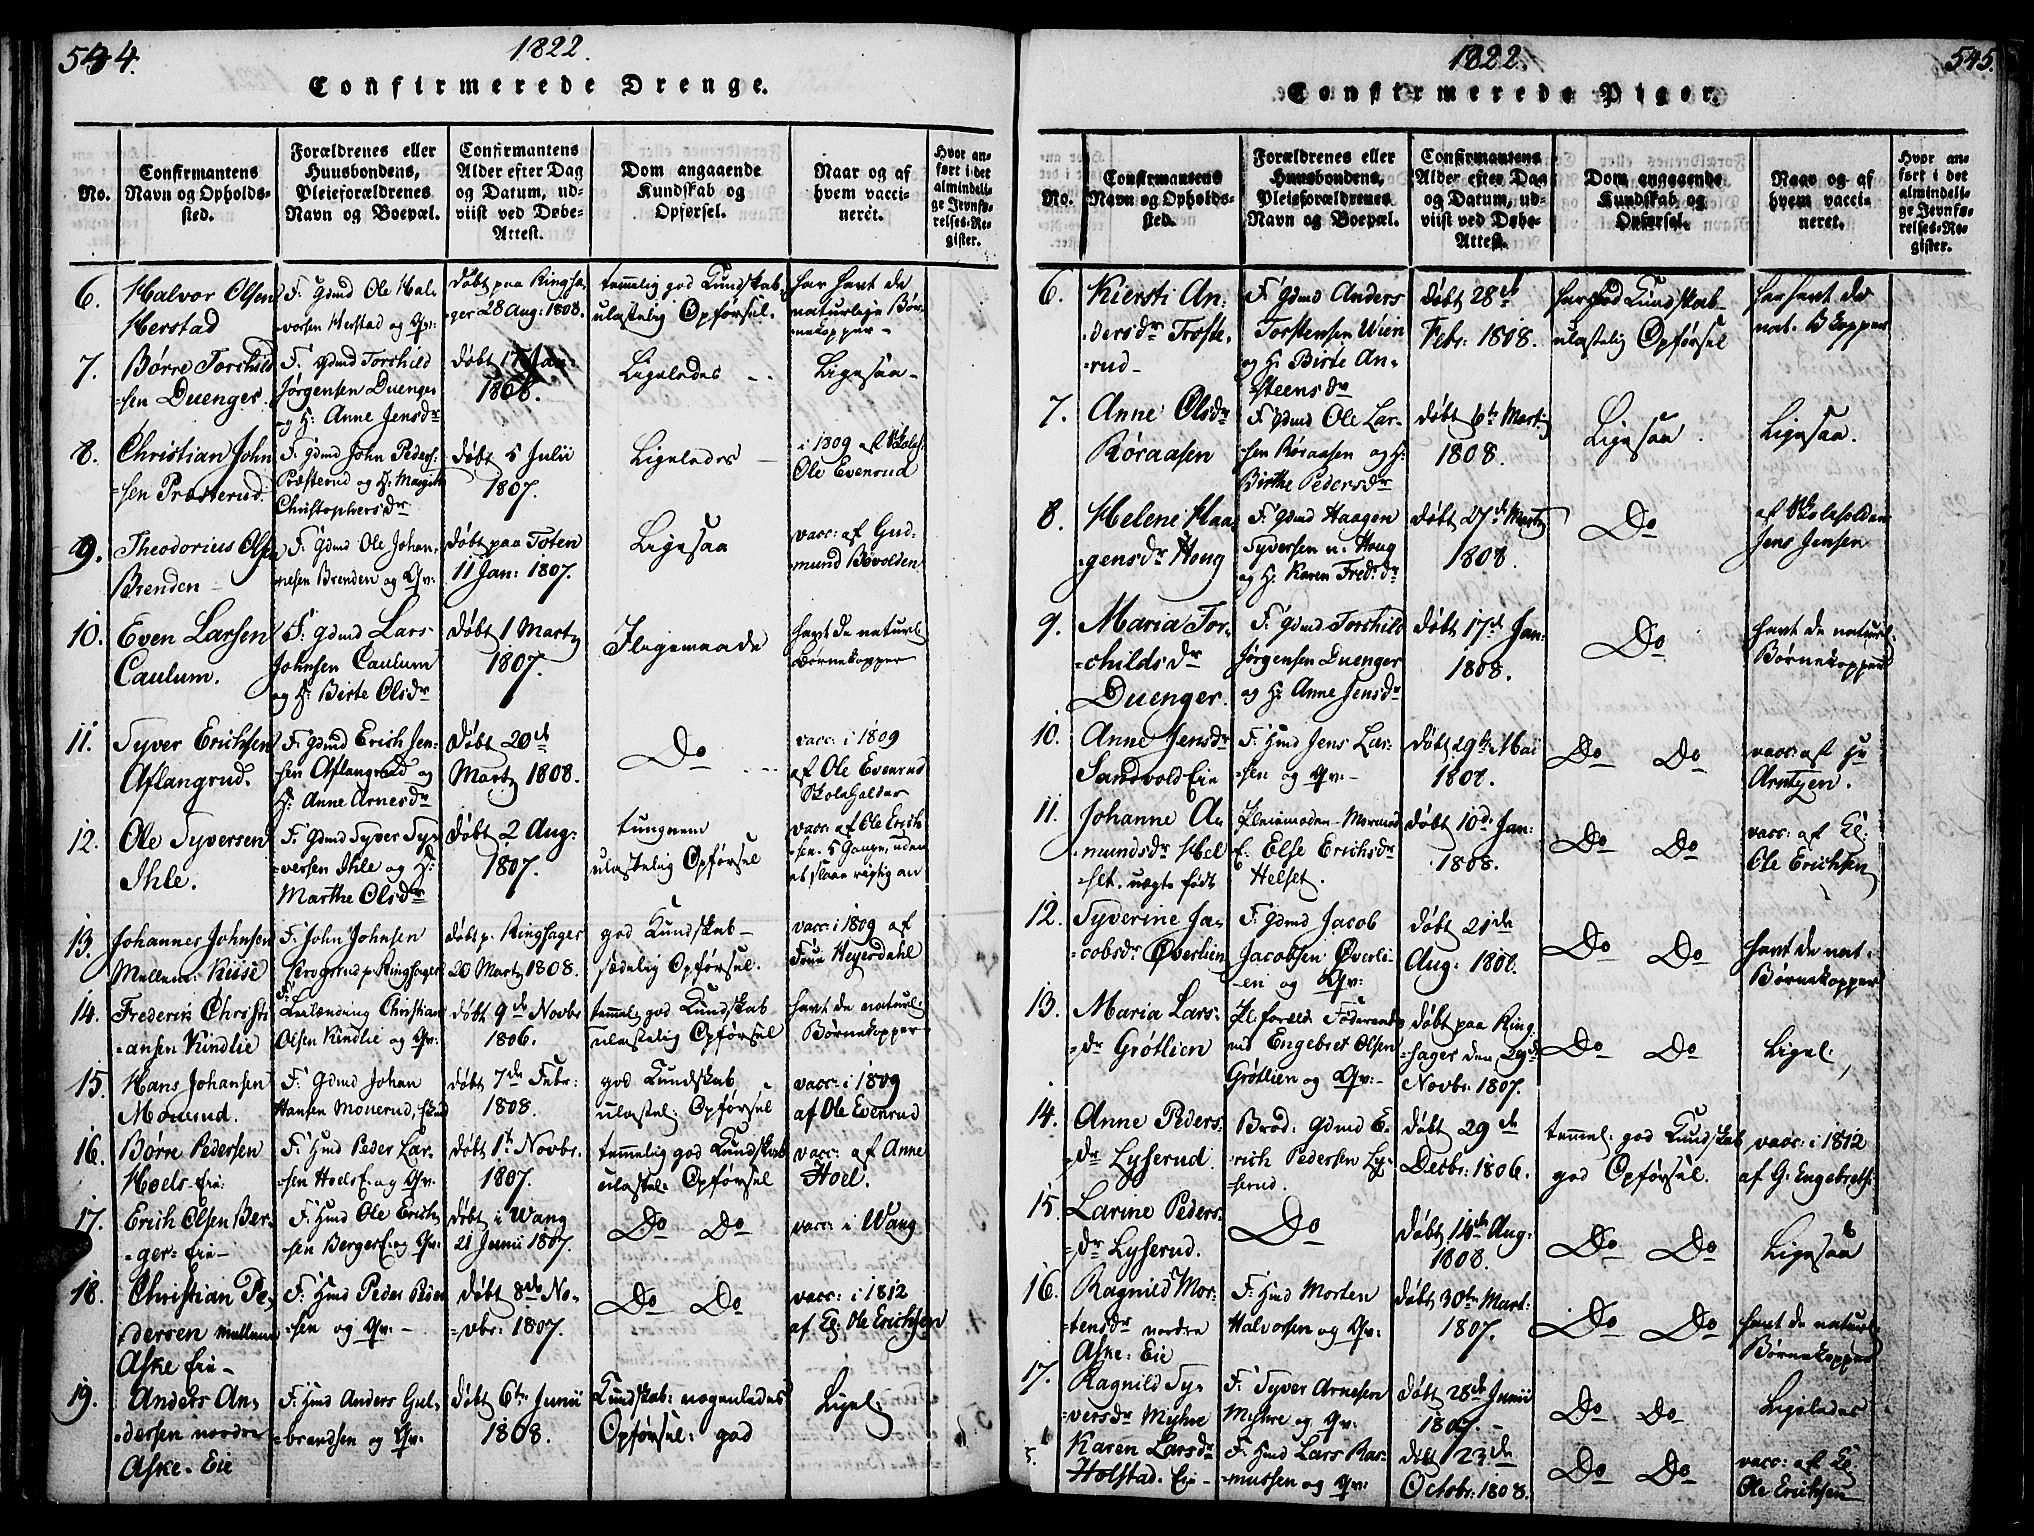 544.
1822.
Confirmerede Drenge.
No.
Confirmantens
Navn og Opholds-
sted.
Forældrenes eller
Huusbondens,
Pleieforældrenes
Navn og Boepæl.
Confirmantens
Alder efter Dag
og Datum, ud-
viist ved Døbe-
Attest.
Dom angaaende
Kundskab og
Opførsel.
Naar og af
hvem vacci-
neret.
Hvor an-
ført i det
almindeli-
ge Jevnfø-
relses-Re-
gister.
6.
Halvor Olsen
Herstad
F: Gdmd Ole Hal-
vorsen Herstad og Qv:
døbt paa Ringsa-
ger 28 Aug: 1808.
temmelig god Kundskab
ulastelig Opførsel.
har havt de
naturlige Bør-
nekopper-
7.
Børre Torchild
=sen Duenger.
F. Gdmd Torchild
Jørgensen Duenger
og H: Anne Jensdr
døbt 17 Jan:
1808.
Ligeledes
Ligesaa-
8.
Christian John
=sen Præsterud.
F: Gdmd John Peders:
Præsterud og H: Margith
Christophersdr
døbt 5 Julii
1807.
Ligeledes -
i 1809 af Skoleh.
Ole Evenrud
9.
Theodorius Olsen
Brenden-
F: Gdmd Ole Johan-
nesen Brenden og Qv:
døbt paa Toten
11 Jan: 1807.
Ligesaa
vacc: af Gud-
mund Bøvolden
10.
Even Larsen
Caulum.
F: Gdmd Lars
Johnsen Caulum
og H: Birte Olsdr
døbt 1 Marty
1807.
Ilegemaade
havt de naturl:
Børnekopper
11.
Syver Erichsen
Aflangrud.
F: Gdmd Erich Jen-
sen Aflangrud og
H: Anne Arnesdr
døbt 20de
Marty 1808.
Do
vacc: i 1809
af Ole Evenrud
Skoleholder
12.
Ole Syversen
Ihle.
F: Gdmd Syver Sy-
versen Ihle og H:
Marthe Olsdr
døbt 2 Aug:
1807.
tungnem
ulastelig Opførsel
vacc: af Ole Erich-
sen. 5 Gange, uden
at slaae rigtig an
13.
Johannes Johnsen
Mellem: Kiise
F: John Johnsen
Krogsrud p. Ringsager
døbt p. Ringsager
20 Marty 1808.
god Kundskab-
sædelig Opførsel.
vacc: i 1809 af
Frue Heyerdahl
14.
Frederik Christi
=ansen Kindlie
F:
Leilænding Christian
Olsen Kindlie og Qv:
døbt 9de Novbr
1806.
temmel: god Kundskab
ulastelig Opførsel
havt de naturl:
Børnekopper
15.
Hans Johansen
Monrud.
F: Gdmd Johan
Hansen Monerud,
døbt 7de Febr:
1808.
god Kundskab
ulastel: Opførsel
vacc: i 1809
af Ole Evenrud
16.
Børre Pedersen
Hoels-Eie:
F: Hmd Peder Lar-
sen Hoels E. og Qv:
døbt 1te Novbr.
1807.
temmelig god Kundskab
ulastel: Opførsel
vacc: af Anne
Hoel.
17.
Erich Olsen Ber-
=ger= Eie-
F: Hmd Ole Erich-
sen Berger E. og Qv:
døbt i Wang
21 Junii 1807.
Do Do
vacc: i Wang
18.
Christian Pe-
dersen mellem
Aske Eie-
F: Hmd Peder Peder
=sen og Qv:-
døbt 8de No-
=vbr: 1807.
Do Do
vacc: i 1812
af Eg: Ole Erichsen
19.
Anders An-
=dersen nordre
Aske. Eie
F: Hmd Anders Gul-
=brandsen og Qv:
døbt 6te Junii
1808.
Kundskab: nogenledes
Opførsel: god
Ligel:
1822.
545.
Confirmerede Piger.
No.
Confirmantens
Navn og Opholds-
sted.
Forældrenes eller
Huusbondens,
Pleieforældrenes
Navn og Boepæl.
Confirmantens
Alder efter Dag
og Datum, ud-
viist ved Døbe-
Attest.
Dom angaaende
Kundskab og
Opførsel.
Naar og af
hvem vacci-
neret.
Hvor an-
ført i det
almindeli-
ge Jevnfø-
relses-Re-
gister.
6.
Kiersti An-
dersdr Troste-
=rud-
F: Gdmd Anders
Torstensen Wien
og H: Birte An-
steensdr
døbt 28de
Febr: 1808.
har god Kundskab
ulastelig Opførsel
har havt de
nat. B kopper
7.
Anne Olsdr
Røraasen
F: Gdmd Ole Lar-
sen Røraasen og H:
Birthe Pedersdr
døbt 6te Marty
1808.
Ligesaa.
Ligesaa.
8.
Helene Haa-
gensdr Houg
F: Gdmd Haagen
Syversen n: Houg
og H: Karen Fred:dr
døbt 27de Marty
1808.
Do
af Skoleholder
Jens Jensen
9.
Maria Tor-
=childsdr
Duenger.
F: Gdmd Torchild
Jørgensen Duenger
og H: Anne Jensdr
døbt 17de Jan:
1808.
Do
havt de naturl:
Børnekopper
10.
Anne Jensdr
Sandvold Eie
F: Hmd Jens Lar-
=sen og Qv:-
døbt 29de Maii
1808.
Do Do
vacc: af Hr
Arntzen.
11.
Johanne A-
mundsdr Hel
=set. uægte født
Pleiemoder- Mormod
E. Else Erichsdr
Helset.
døbt 10de Jan:
1808.
Do Do
vacc: af Eg:
Ole Erichsen
12.
Syverine Ja-
cobsdr Øverlien
F: Gdmd Jacob
Jacobsen Øverli-
-en og Qv:
døbt 21de
Aug: 1808.
Do Do
havt de nat:
Børnekopper
13.
Maria Lars-
dr Grøtlien
Pl. foræld: Føderaads
md Engebret Olsen
Grøtlien og Qv:-
døbt paa Ring-
=sager den 29de
Novbr: 1807.
Do Do
Ligel:
14.
Anne Peders-
dr Lyserud.
Brod: Gdmd E-
rich Pedersen Ly-
serud.
døbt 29de
Decbr: 1806.
temmel: god Kundskab
god Opførsel.
vacc: i 1812
af G: Engebreth:
15.
Larine Peders-
=dr Lyserud.
Do
døbt 14de Aug:
1808.
Do Do
Ligesaa
16.
Ragnild Mor-
=tensdr nordre
Aske. Eie
F: Hmd Morten
Halvorsen og Qv:
døbt 30te Mart:
1807.
Do Do
havt de naturl:
Børnekopper
17.
Ragnild Sy-
versdr Myhre
F: Syver Arnesen
Myhre og Qv:
døbt 28de Junii
1807.-
Do Do
Ligeledes
Karen Larsdr
Holstad. Eie-
F: Hmd Lars Ras-
mussen og Qv:
døbt 23de
Octobr: 1808.
Do Do
vacc: af Eg:
Ole Erichsen